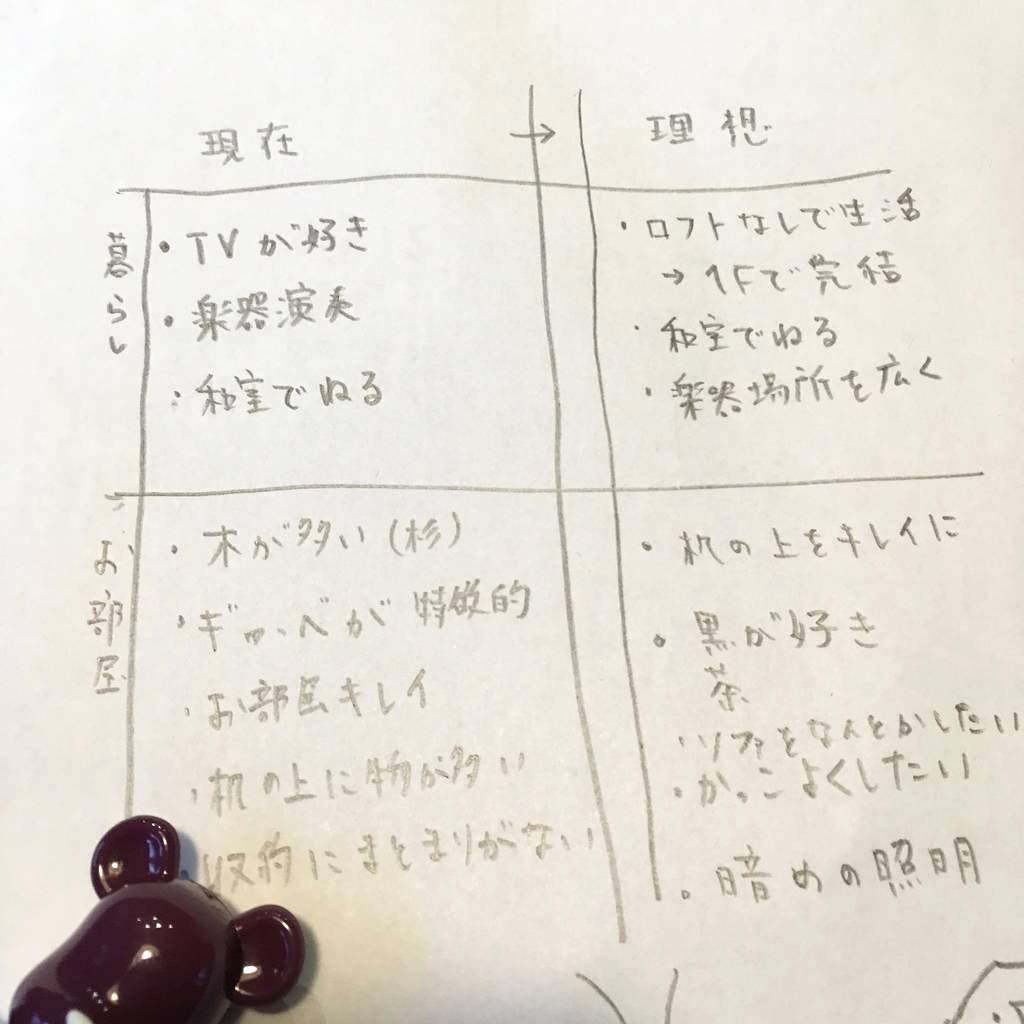 現在 → 理想
暮らし
・TVが好き
・楽器演奏
・和室でねる
・ロフトなしで生活
→1Fで完結
・和室でねる
・楽器場所を広く
お部屋
・木が多い(杉)
・ギャッベが特徴的
・お部屋キレイ
・机の上に物が多い
にまとまりがない
・机の上をキレイに
・黒が好き
茶
・ソファをなんとかしたい
・かっこよくしたい
・暗めの照明